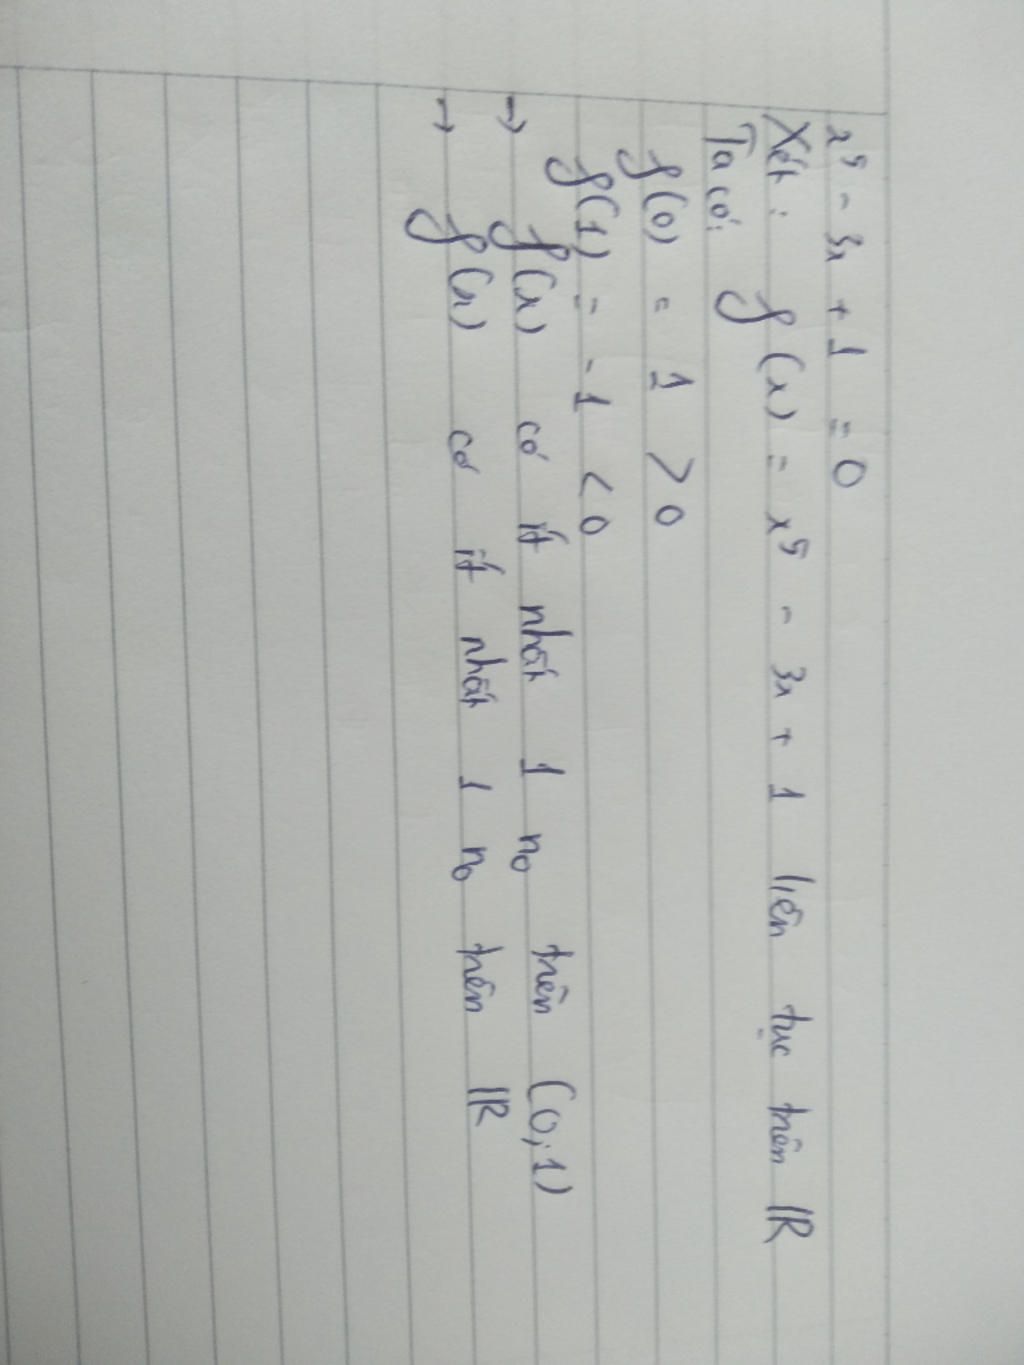 x⁵ - 3x + 1 = 0
Xét: f(x) = x⁵ - 3x + 1 liên tục trên ℝ
Ta có:
f(0) = 1 > 0
f(1) = -1 < 0
→ f(x) có ít nhất 1 n₀ trên (0;1)
→ f(x) có ít nhất 1 n₀ trên ℝ